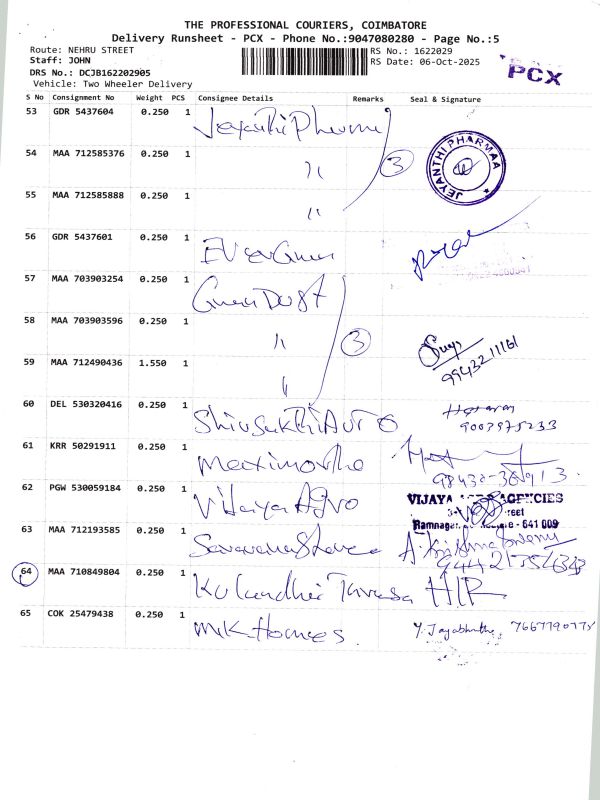 THE PROFESSIONAL COURIERS, COIMBATORE
Delivery Runsheet - PCX - Phone No.:9047080280 - Page No.:5
Route: NEHRU STREET
Staff: JOHN
DRS No.: DCJB162202905
Vehicle: Two Wheeler Delivery
RS No.: 1622029
RS Date: 06-Oct-2025
PCX
S No Consignment No Weight PCS Consignee Details Remarks Seal & Signature
53 GDR 5437604 0.250 1 Jeyanthi Pharma
JEYANTHI PHARMAA
54 MAA 712585376 0.250 1 〃 3
55 MAA 712585888 0.250 1 〃
56 GDR 5437601 0.250 1 EverGreen
57 MAA 703903254 0.250 1 Green Dust
58 MAA 703903596 0.250 1 〃 3
59 MAA 712490436 1.550 1 〃 9943211161
60 DEL 530320416 0.250 1 Shivsakthi Auto
9007575233
61 KRR 50291911 0.250 1
62 PGW 530059184 0.250 1 Vijaya Agro
VIJAYA AGENCIES
Ramnagar, - 641 009
63 MAA 712193585 0.250 1
64 MAA 710849804 0.250 1 H/R
65 COK 25479438 0.250 1 M.K. Homes